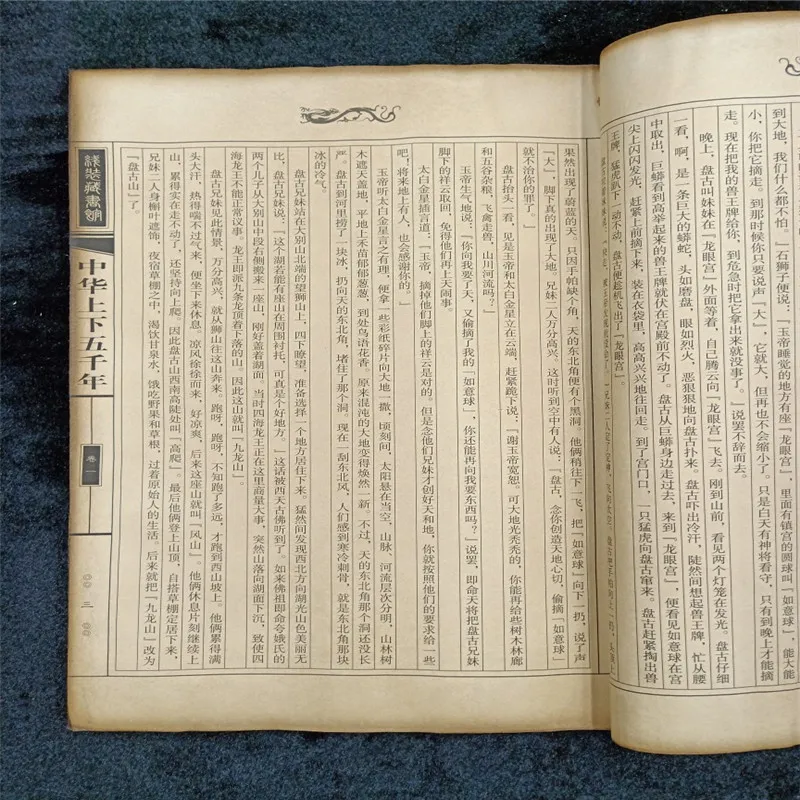 到大地，我们什么都不怕。」石狮子便说：「玉帝睡觉的地方有座「龙眼宫」，里面有镇宫的圆球叫「如意球」，能大能
小，你把它摘走。到那时候你只要说声「大」，它就大，但再也不会缩小了。只是白天有神将看守，只有到晚上才能摘
走。现在把我的兽王牌给你，到危急时把它拿出来就没事了。」说罢不辞而去。
晚上，盘古叫妹妹在「龙眼宫」外面等着，自己腾云向「龙眼宫」飞去。刚到山前，看见两个灯笼在发光。盘古仔细
一看，啊，是一条巨大的蟒蛇，头如磨盘，眼如烈火，恶狠狠地向盘古扑来。盘古吓出冷汗，陡然间想起兽王牌，忙从腰
中取出，巨蟒看到高举起来的兽王牌就伏在宫殿前不动了。盘古从巨蟒身边走过去，来到「龙眼宫」，便看见如意球在宫
尖上闪闪发光，赶紧上前摘下来，装在衣袋里，高高兴兴地往回走。到了宫门口，一只猛虎向盘古窜来。盘古赶紧掏出兽
王牌，猛虎趴下一动不动，盘古便趁机飞出了「龙眼宫」。
果然出现了蔚蓝的天，只因手帕缺个角，天的东北角便有个黑洞。他俩稍往下一飞，把「如意球」向下一扔，说了声
「大」，脚下真的出现了大地。兄妹二人万分高兴。这时听到空中有人说：「盘古，念你创造天地心切，偷摘「如意球」
就不治你的罪了。」
盘古抬头一看，见是玉帝和太白金星立在云端，赶紧跪下说：「谢玉帝宽恕。可大地光秃秃的，你能再给些树木林廊
和五谷杂粮，飞禽走兽，山川河流吗？」
玉帝生气地说：「你向我要了天，又偷摘了我的「如意球」，你还能再向我要东西吗？」说罢，即命天将把盘古兄妹
脚下的祥云取回，免得他们再上天闹事。
太白金星插言道：「玉帝，摘掉他们脚上的祥云是对的。但是念他们兄妹才创好天和地，你就按照他们的要求给一些
吧！将来地上有人，也会感谢你的。」
玉帝听太白金星言之有理，便拿一些彩纸碎片向大地一撒，顷刻间，太阳悬在当空，山脉、河流层次分明，山林树
木遮天盖地，平地上禾苗郁郁葱葱，到处鸟语花香。原来混沌的大地变得焕然一新。不过，天的东北角那个洞还没长
严。盘古到河里捞了一块冰，扔向天的东北角，堵住了那个洞。现在一刮东北风，人们感到寒冷刺骨，就是东北角那块
冰的冷气。
盘古兄妹站在大别山北端的望狮山上，四下瞭望，准备选择一个地方居住下来。猛然间发现西北方向湖光山色美丽无
比，盘古兄妹说：「这个湖若能有座山在周围衬托，可真是个好地方。」这话被西天古佛听到了。如来佛祖即命夸娥氏的
两个儿子从大别山中段右侧搬来一座山，刚好盖着湖面。当时四海龙王正在这里商量大事，突然山落向湖面下沉，致使四
海龙王不能正常议事，龙王即派九条龙顶着下落的山。因此这山就叫「九龙山」。
盘古兄妹见此情景，万分高兴，就从狮山往这山奔来。跑呀，跑呀，不知跑了多远，才跑到西山坡上。他俩累得满
头大汗，热得喘不过气来，便坐下来休息。凉风徐徐而来，好凉爽，后来这座山就叫「风山」。他俩休息片刻继续上
山，累得实在走不动了，还坚持向上爬。因此盘古山西南高陡处叫「高爬」。最后他俩登上山顶，自搭草棚定居下来，
兄妹二人身槲叶遮饰，夜宿草棚之中，渴饮甘泉水，饿吃野果和草根，过着原始人的生活。后来就把「九龙山」改为
「盘古山」了。
线装藏书馆
中华上下五千年
卷一
三